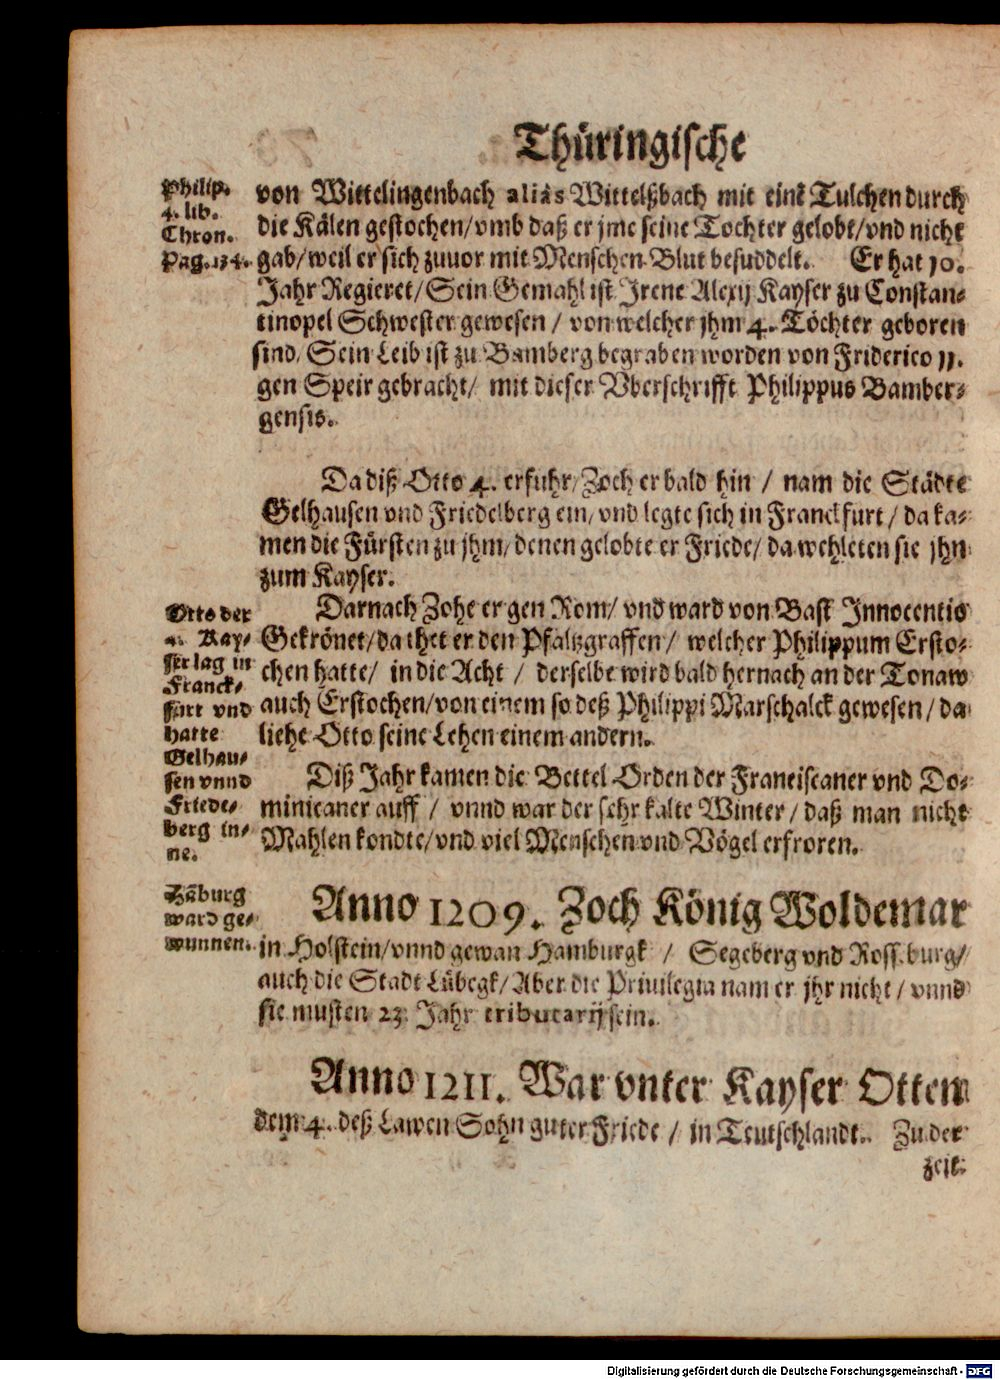 Thüringische
Philip.
4. lib.
Chron.
Pag. 134.
von Wittelingenbach aliàs Wittelßbach mit einē Tulchen durch
die Kälen gestochen/ vmb daß er jme seine Tochter gelobt/ vnd nicht
gab/ weil er sich zuuor mit Menschen Blut besuddelt. Er hat 10.
Jahr Regieret/ Sein Gemahl ist Irene Alexij Kayser zu Constan-
tinopel Schwester gewesen / von welcher jhm 4. Töchter geboren
sind, Sein Leib ist zu Bamberg begraben worden von Friderico 11.
gen Speir gebracht/ mit dieser Vberschrifft Philippus Bamber-
gensis.
Da diß Otto 4. erfuhr/ Zoch er bald hin / nam die Städte
Gelhausen vnd Friedelberg ein/ vnd legte sich in Franckfurt / da ka-
men die Fürsten zu jhm/ denen gelobte er Friede/ da wehleten sie jhn
zum Kayser.
Otto der
4. Kay-
ser lag in
Franck-
furt vnd
hatte
Gelhau-
sen vnnd
Friede-
berg in-
ne.
Darnach Zohe er gen Rom/ vnd ward von Bast Innocentio
Gekrönet/ da thet er den Pfaltzgraffen / welcher Philippum Ersto-
chen hatte/ in die Acht / derselbe wird bald hernach an der Tonaw
auch Erstochen/ von einem so deß Philippi Marschalck gewesen / da
liehe Otto seine Lehen einem andern.
Diß Jahr kamen die Bettel Orden der Franciscaner vnd Do-
minicaner auff / vnnd war der sehr kalte Winter / daß man nicht
Mahlen kondte/ vnd viel Menschen vnd Vögel erfroren.
Hāburg
ward ge-
wunnen.
Anno 1209. Zoch König Woldemar
in Holstein/ vnnd gewan Hamburgk / Segeberg vnd Ross.burg/
auch die Stadt Lübegk/ Aber die Priuilegia nam er jhr nicht / vnnd
sie musten 23 Jahr tributarij sein.
Anno 1211. War vnter Kayser Otten
dem 4. deß Lawen Sohn guter Friede / in Teutschlandt. Zu der
zeit
Digitalisierung gefördert durch die Deutsche Forschungsgemeinschaft - DFG